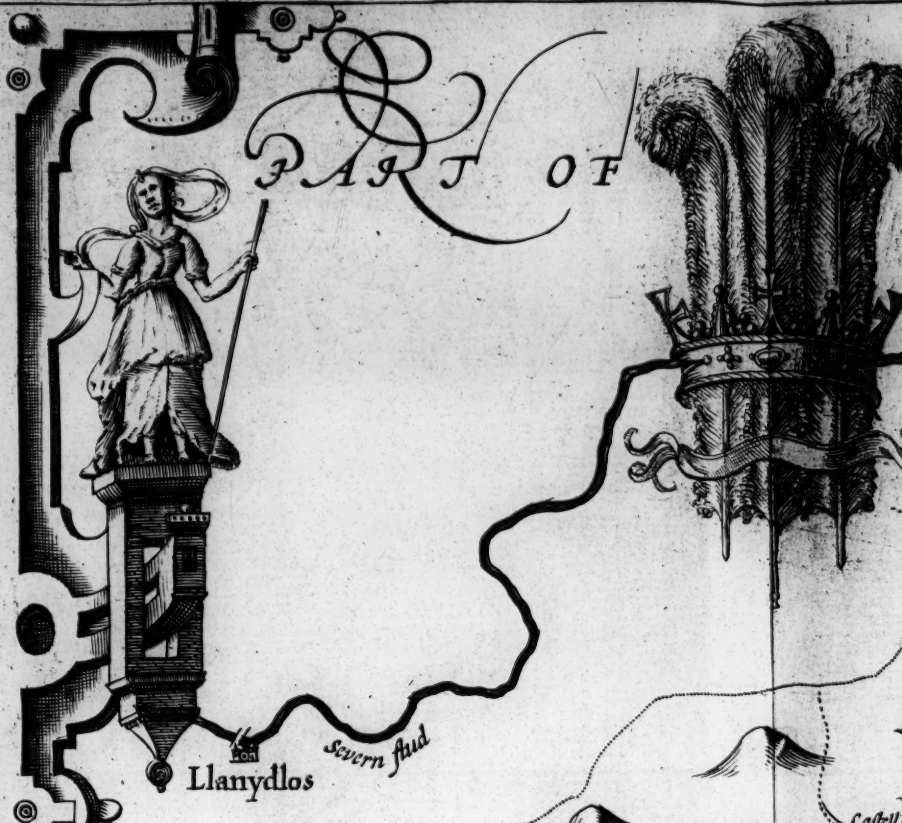 PART OF
Severn flud
Llanydlos
Castell